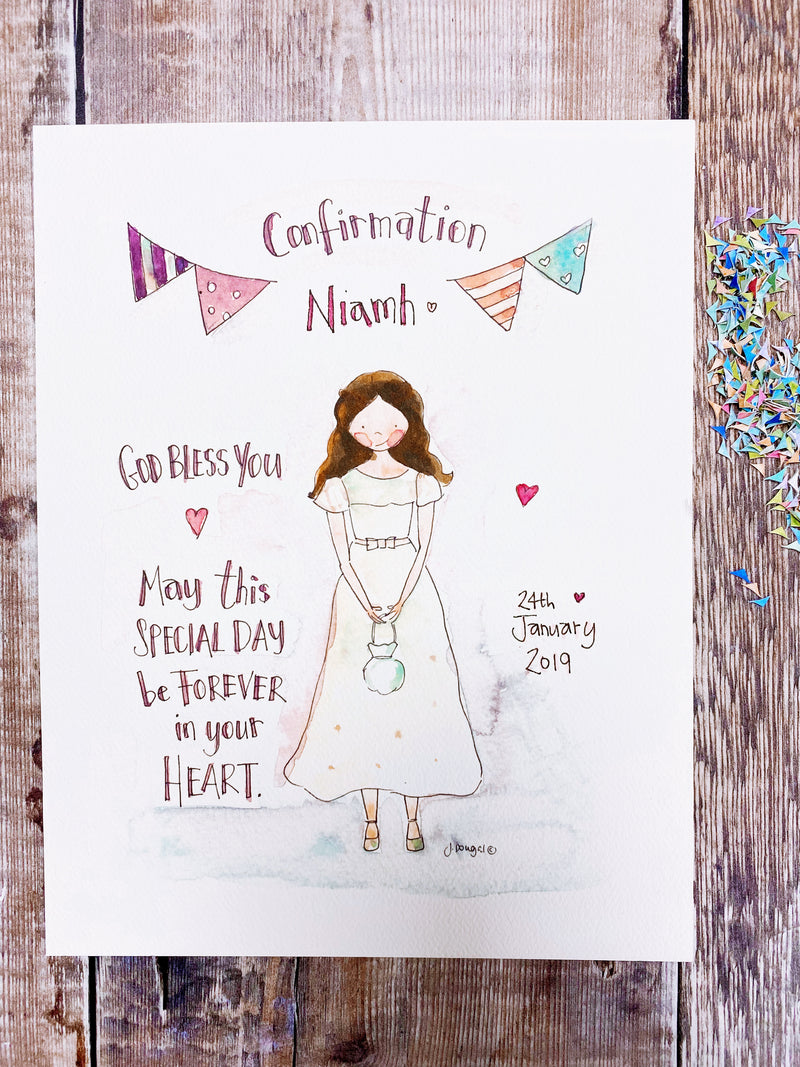 Confirmation
Niamh
GOD BLESS YOU
May this
SPECIAL DAY
be FOREVER
in your
HEART.
24th
January
2019
J. Dougal ©